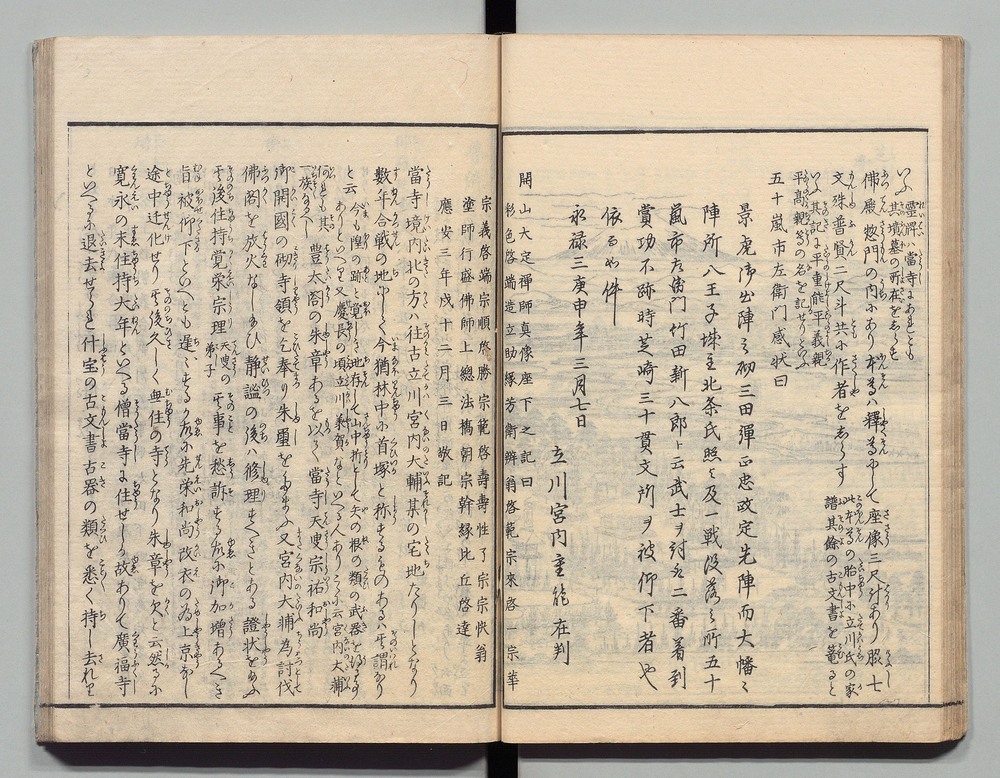 いふ霊牌ハ當寺にあれとも
其墳墓の所在をしらす
佛殿惣門の内にあり本尊ハ釋尊にして座像三尺計あり脇士
文殊普賢二尺斗共に作者をしらす
此本尊の胎中に立川氏の家
譜其餘の古文書を篭ると
いふ其記に平重能平義親
平高親等の名を記せりとそ
五十嵐市左衛門感状曰
景虎御出陣之砌三田彈正忠政定先陣而大幡之
陣所八王子城主北条氏照与及一戦没落之所五十
嵐市左衛門竹田新八郎ト云武士ヲ討名二番着到
賞功不跡時芝崎三十貫文所ヲ被仰下者也
依而如件
永禄三庚申年三月七日
立川宮内重能在判
開山大定禪師真像座下之記曰
彩色啓端造立助縁芳衛辨翁啓範宗來啓一宗華
宗義啓端宗順啓勝宗範啓壽壽性了宗宗快翁
塗師行盛佛師上總法橋朝宗幹縁比丘啓達
應安三年戌十二月三日敬記
當寺境内北の方ハ往古立川宮内大輔某の宅地たりしとなり
數年合戦の地にして今猶林中に首塚と称するものある其謂なり
と云今も隍の跡と覚しき地存して山中折として矢の根の類の武器を得る事
ありといへり又慶長の頃立川某賀なといへる人ありこらに云宮内大輔
何れも其
一族なるへし
豊太閤の朱章あるを以く當寺天叟宗祐和尚
御開國の砌寺領を乞奉り朱璽をたまふ又宮内大輔為討伐
佛閣を放火なしぬひ静謐の後ハ修理すへきとある證状をあふ
其後住持覚栄宗理天叟の
弟子其事を愁訴するゆゑに御加増あるへき
旨被仰下といへとも遅々するゆゑに先栄和尚改衣の為上京なし
途中迁化せり其後久しく無住の寺となり朱章を欠と云然るに
寛永の末住持大年といへる僧當寺に住せしか故ありて廣福寺
といへるに退去せられ什宝の古文書古器の類を悉く持し去れり